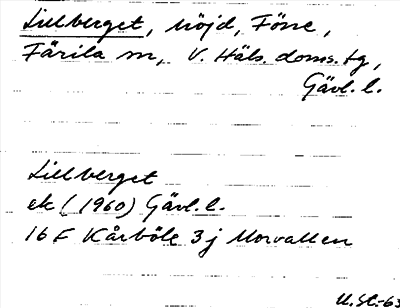 Lillberget, höjd, Föne,
Färila sn, V. Häls. doms. tg,
Gävl. l.
Lillberget
ek (1960) Gävl. l.
16 F Kårböle 3 j Morvallen
U. St.-63